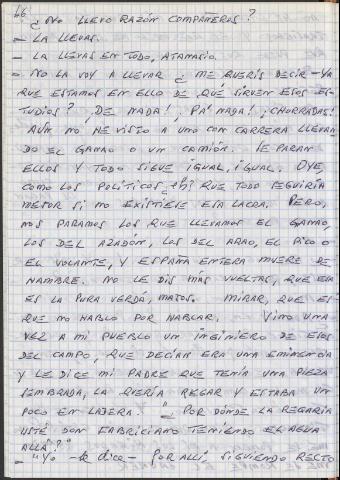 46
¿NO LLEVO RAZÓN COMPAÑEROS?
- LA LLEVAS.
- LA LLEVAS EN TODO, ATANASIO.
- NO LA VOY A LLEVAR ¿ME QUERIS DECIR -YA
QUE ESTAMOS EN ELLO DE QUÉ SIRVEN ESOS ES-
TUDIOS? ¡DE NADA! ¡PA' NADA! ¡CHORRADAS!
AÚN NO HE VISTO A UNO CON CARRERA LLEVAN
DO EL GANAO O UN CAMIÓN. SE PARAN
ELLOS Y TODO SIGUE IGUAL, IGUAL. OYE
COMO LOS POLÍTICOS ¿eh? QUE TODO SEGUIRÍA
MEJOR SI NO EXISTIESE ESA LACRA. PERO,
NOS PARAMOS LOS QUE LLEVAMOS EL GANAO,
LOS DEL AZADÓN, LOS DEL ARAO, EL PICO O
EL VOLANTE, Y ESPAÑA ENTERA MUERE DE
HAMBRE. NO LE DIS MÁS VUELTAS, QUE ESA
ES LA PURA VERDÁ, MAJOS. MIRAR, QUE ES
QUE NO HABLO POR HABLAR. VINO UNA
VEZ A MI PUEBLO UN INGINIERO DE ESOS
DEL CAMPO, QUE DECÍAN ERA UNA EMINENCIA
Y LE DICE MI PADRE QUE TENÍA UNA PIEZA
SEMBRADA, LA QUERÍA REGAR Y ESTABA UN
POCO EN LADERA: "¿POR DÓNDE LA REGARÍA
USTÉ DON FABRICIANO TENIENDO EL AGUA
ALLÁ?"
- "YO -le dice- POR ALLÍ, SIGUIENDO RECTO